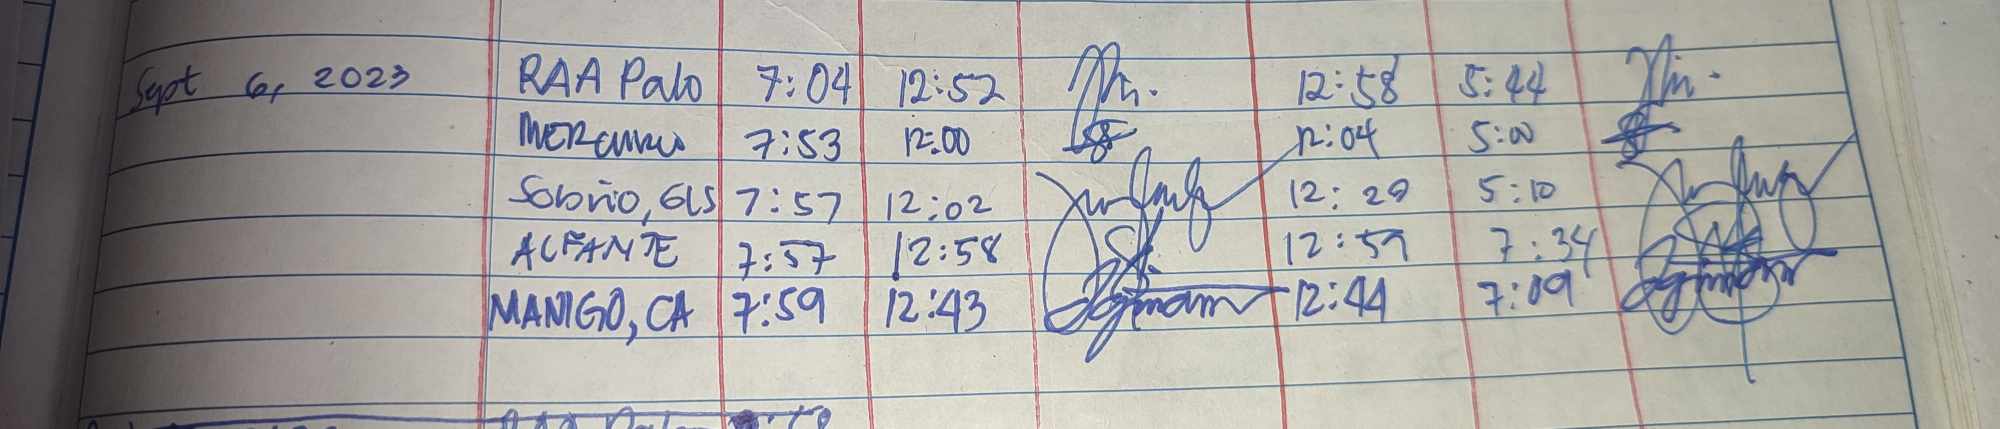 Sept 6, 2023 RAA Palo 7:04 12:52 12:58 5:44
MERCURIO 7:53 12:00 12:04 5:00
Sobrio, GLS 7:57 12:02 12:29 5:10
ALFANTE 7:57 12:58 12:59 7:34
MANIGO, CA 7:59 12:43 12:44 7:09